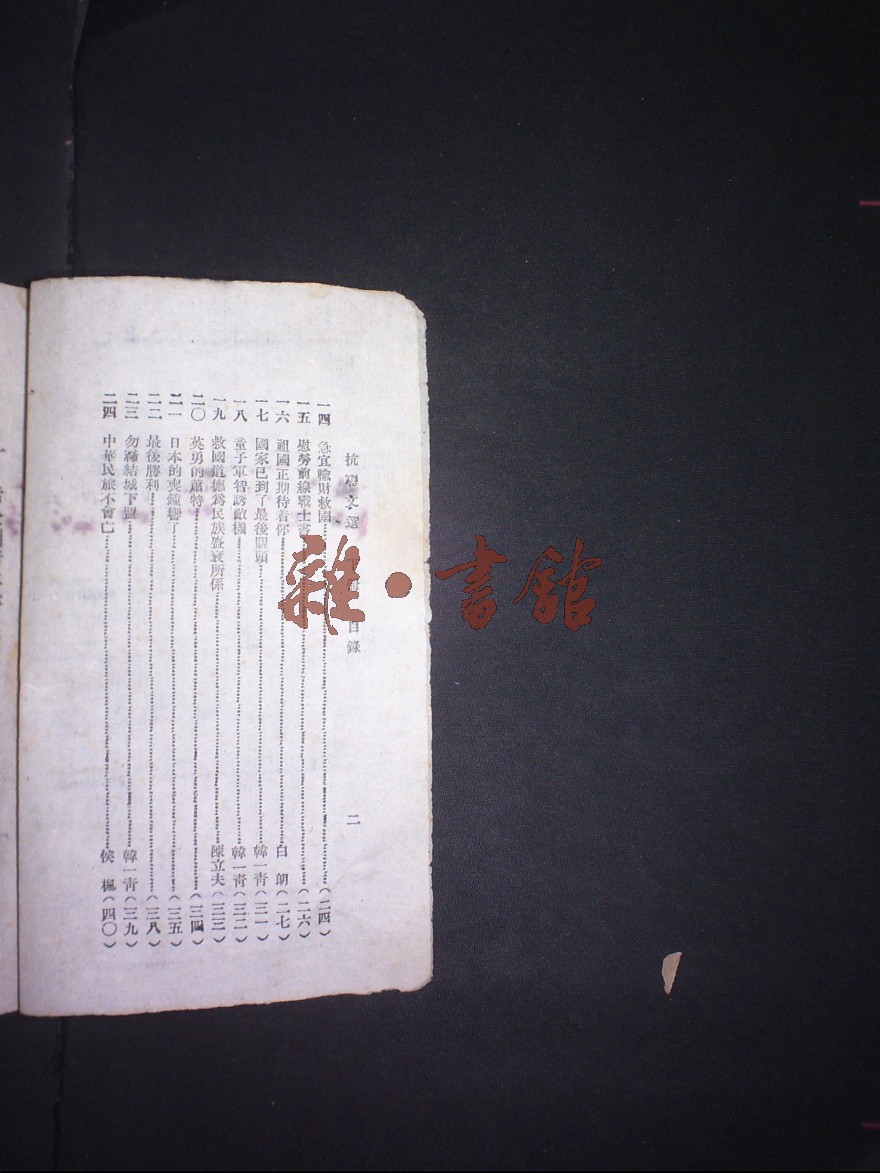 抗戰文選 目錄 二
一四 急宜輸財救國 (二四)
一五 慰勞前線戰士書 (二六)
一六 祖國正期待着你 白朗 (二七)
一七 國家已到了最後關頭 韓一青 (三一)
一八 童子軍智誘敵機 韓一青 (三二)
一九 救國道德爲民族盛衰所係 陳立夫 (三三)
二〇 英勇的蕭特 (三四)
二一 日本的喪鐘響了 (三五)
二二 最後勝利 (三八)
二三 勿締結城下盟 韓一青 (三九)
二四 中華民族不會亡 侯楓 (四〇)
雜·書館